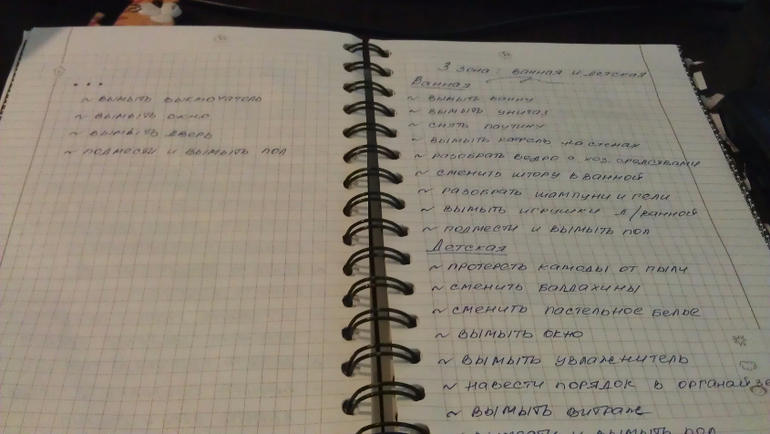 ...
~ вымыть выключатель
~ вымыть окно
~ вымыть дверь
~ подмести и вымыть пол
3 зона: ванная и детская
Ванная
~ вымыть ванну
~ вымыть унитаз
~ снять паутину
~ вымыть кафель на стенах
~ разобрать ведро с хоз. средствами
~ сменить штору в ванной
~ разобрать шампуни и гели
~ вымыть игрушки д/ванной
~ подмести и вымыть пол
Детская
~ протереть камоды от пыли
~ сменить балдахины
~ сменить пастельное белье
~ вымыть окно
~ вымыть увлажнитель
~ навести порядок в органайзе
~ вымыть витраж
и вымыть пол